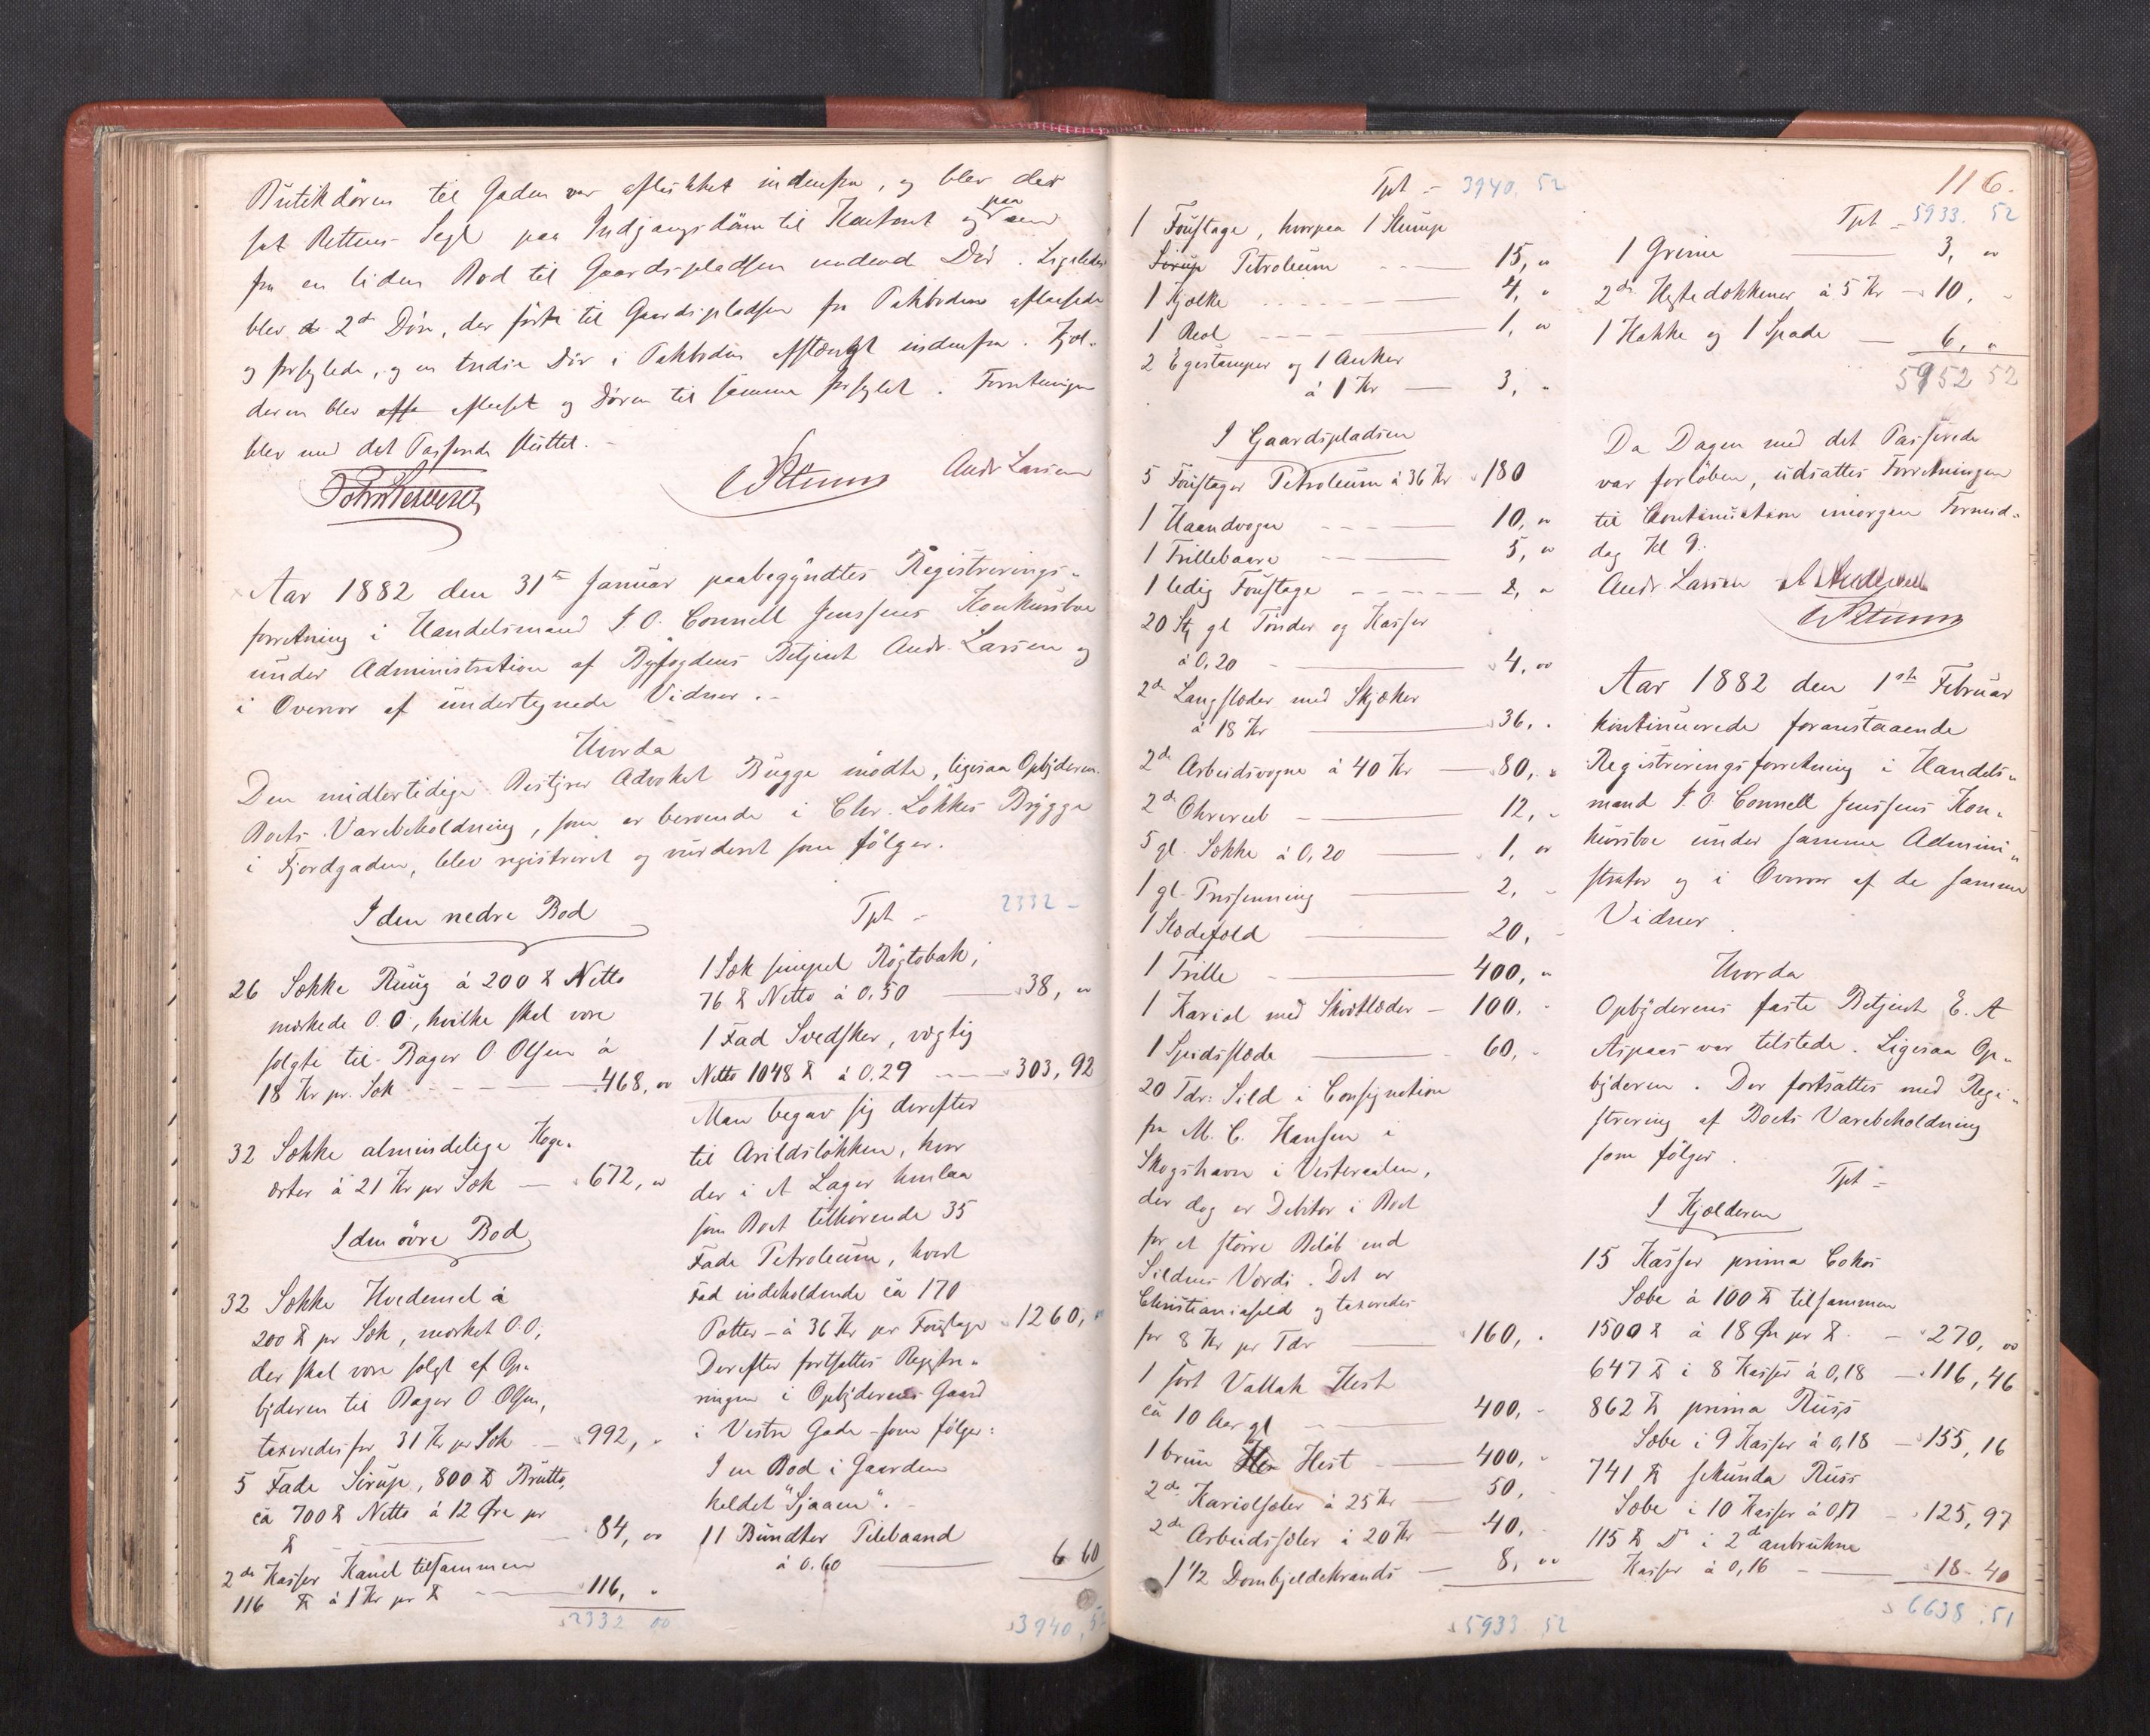 Butikdören til Gaden var aflukket indenfra, og blev der
sat Rettens Segl paa Indgangsdören til Kontoret og paa
fra en liden Bod til Gaardspladsen Dör. Ligeledes
blev 2de Döre, der förte til Gaardspladsen fra Pakboden aflaasede
og forseglede, og en tredie Dör i Pakboden afstængt indenfra. Kjæl-
deren blev aflaaset og Dören til samme forseglet. Forretningen
blev med det Passerede sluttet.
Andr Larsen
Aar 1882 den 31te Januar paabegyndtes Registrerings-
forretning i Handelsmand J. O. Connell Jenssens Konkursboe
under Administration af Byfogdens Betjent Andr. Larsen og
i Overvær af undertegnede Vidner.-
Hvorda
Den midlertidige Bestyrer Advokat Bugge mödte, ligesaa Opbyderen.
Boets Varebeholdning, som er beroende i Chr. Lökkes Brygge
i Fjordgaden, blev registreret og vurderet som fölger.
I den nedre Bod
26 Sække Rug á 200 ℔ Netto
mærkede O. O, hvilke skal være
solgte til Bager O Olsen á
18 Kr pr. Sæk - 468, 00
32 Sække almindelige Koge-
ærter á 21 Kr pr Sæk — 672, 00
I den övre Bod
32 Sække Hvedemel á
200 ℔ pr Sæk, mærket O. O,
der skal være solgt af Op-
byderen til Bager O Olsen,
taxeredes for 31 Kr pr Sæk — 992, "
5 Fade Sirup, 800 ℔ Brutto,
ca 700 ℔ Netto á 12 Øre pr
℔ — 84, 00
2de Kasser Kanel tilsammen
116 ℔ á 1 Kr pr ℔ — 116, "
2332 00
Tpt - 2332 -
1 Sæk simpel Rögtobak,
76 ℔ Netto á 0.50 — 38, 00
1 Fad Svedsker, vægtig
Netto 1048 ℔ á 0.29 — 303, 92
Man begav sig derefter
til Arildslökken, hvor
der i et Lager henlaa
som Boet tilhörende 35
Fade Petroleum, hvert
Fad indeholdende ca 170
Potter - á 36 Kr pr Foustage 1260, 00
Derefter fortsattes Registre-
ringen i Opbyderens Gaard
i Vestre Gade - som fölger:
I en Bod i Gaarden
kaldet "Sjaaen".-
11 Bundter Tilebaand
á 0.60 — 6 60
3940, 52
Tpt - 3940, 52
1 Foustage, hvorpaa 1 Stump
Sirup Petroleum — 15, "
1 Kjælke — 4, "
1 Reol — 1, 00
2 Egestamper og 1 Anker
á 1 Kr — 3, "
I Gaardspladsen
5 Foustager Petroleum á 36 Kr 180
1 Haandvogn — 10, 00
1 Trillebaare — 5, 00
1 ledig Foustage — 2, "
20 Stk gl Tönder og Kasser
á 0,20 — 4, 00
2de Langslæder med Skjæker
á 18 Kr — 36, "
2de Arbeidsvogne á 40 Kr — 80, "
2de — 12, "
5 gl. Sække á 0,20 — 1, 00
1 gl. Pressenning — 2, -
1 Slædefæld — 20, -
1 Trille — 400, "
1 Kariol med Skvætlæder — 100, -
1 Spidsslæde — 60, -
20 Tdr: Sild i Consignation
fra M. C. Hansen i
Skogshavn i Vesteraalen,
der dog er Debitor i Boet
for et större Belöb end
Sildens Værdi. Det er
Christianiasild og taxeredes
for 8 Kr pr Tdr — 160, "
1 sort Vallak Hest
ca 10 Aar gl — 400, -
1 brun Hest — 400, -
2de Kariolsæler á 25 Kr — 50, -
2de Arbeidssæler á 20 Kr — 40, -
1 1/2 Dombjeldekrands — 8, 00
5933 52
116.
Tpt - 5933. 52
1 Grime — 3, 00
2de Hestedækkener á 5 Kr — 10, -
1 Hakke og 1 Spade — 6, "
5952 52
Da Dagen med det Passerede
var forlöben, udsattes Forretningen
til Continuation imorgen Formid-
dag Kl 9.
Andr. Larsen
Aar 1882 den 1ste Februar
kontinuerede foranstaaende
Registreringsforretning i Handels-
mand J. O. Connell Jenssens Kon-
kursboe under samme Admini-
strator og i Overvær af de samme
Vidner.
Hvorda
Opbyderens faste Betjent E. A
Aspaas var tilstede. Ligesaa Op-
byderen. Der fortsattes med Regi-
strering af Boets Varebeholdning
som fölger.
Tpt -
I Kjælderen
15 Kasser prima Cokos
Sæbe á 100 ℔ tilsammen
1500 ℔ á 18 Øre pr ℔. — 270, 00
647 ℔ i 8 Kasser á 0,18 — 116, 46
862 ℔ prima Russ
Sæbe i 9 Kasser á 0,18 — 155, 16
741 ℔ sekunda Russ
Sæbe i 10 Kasser á 0,17 — 125, 97
115 ℔ Do i 2de anbrukne
Kasser á 0,16 — 18 - 40
6638. 51